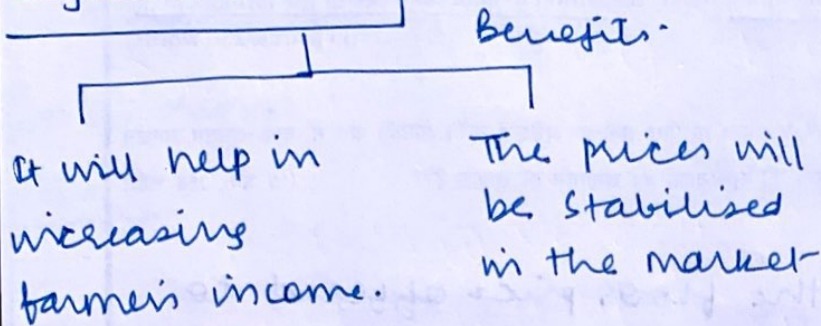 Benefits.
It will help in
increasing
farmer's income.
The prices will
be stabilised
in the market